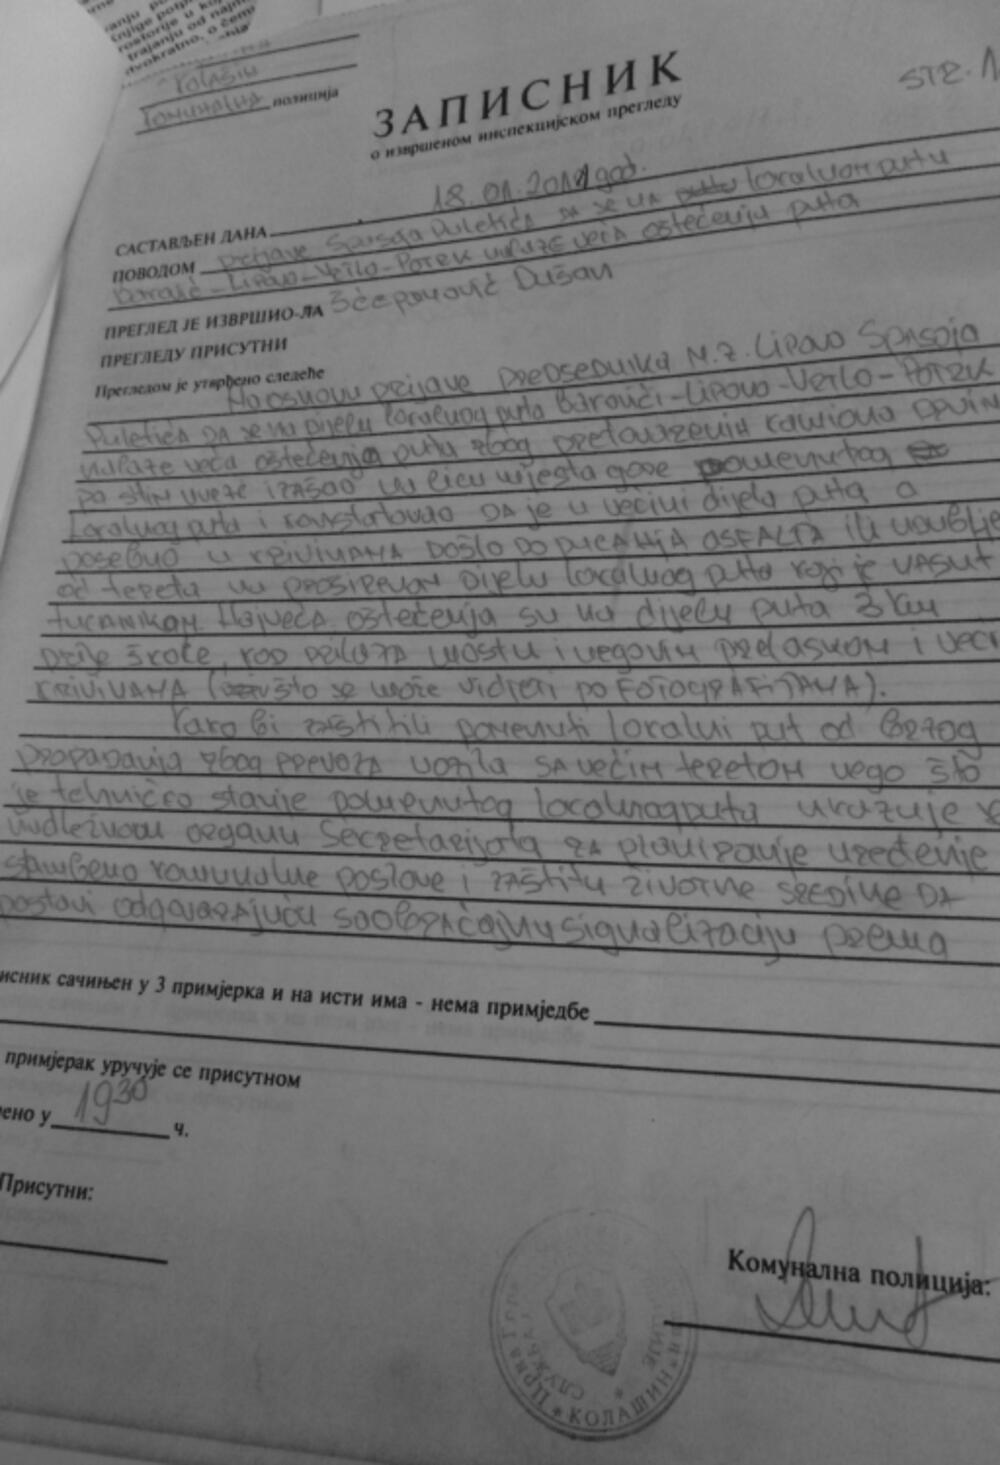 KOLAŠIN
KOMUNALNA полиција
STR. 1
ЗАПИСНИК
о извршеном инспекцијском прегледу
САСТАВЉЕН ДАНА 18.01.2011 god.
ПОВОДОМ prijave Spasoja Puletića DA SE NA lokalnom putu
Barovići-Lipovo-Vrilo-Potrk nalaze veća oštećenja puta
ПРЕГЛЕД ЈЕ ИЗВРШИО-ЛА Šćepanović Dušan
ПРЕГЛЕДУ ПРИСУТНИ
Прегледом је утврђено следеће
Na osnovu prijave PREDSEDNIKA M.Z. Lipovo Spasoja
Puletića DA se na dijelu lokalnog puta Barovići-Lipovo-Vrilo-Potrk
nalaze veća oštećenja puta zbog kamiona
izašao na licu mjesta gore pomenutog
lokalnog puta i konstatovao DA je u većini dijela puta a
posebno u KRIVINAMA DOŠLO DO PUCANJA ASFALTA ILI
od tereta na PROŠIRENOM Dijelu lokalnog puta koji je NASUT
tucanikom. Najveća oštećenja su na dijelu puta 3 km
prije škole, KOD PRILAZA mostu i njegovim prelaskom i većim
KRIVINAMA (što se može vidjeti po FOTOGRAFIJAMA).
Kako bi zaštitili pomenuti lokalni put od Brzog
propadanja zbog PREVOZA vozila SA većim teretom nego što
je tehničko stanje pomenutog lokalnog puta ukazuje se
nadležnom organu Sekretarijata ZA planiranje uređenje
stambeno komunalne poslove i zaštitu životne SREDINE DA
postavi odgovarajuću saobraćajnu signalizaciju prema
исник сачињен у 3 примјерка и на исти има - нема примједбе
примјерак уручује се присутном
ено у 19 30 ч.
Присутни:
Комунална полиција:
КОЛАШИН